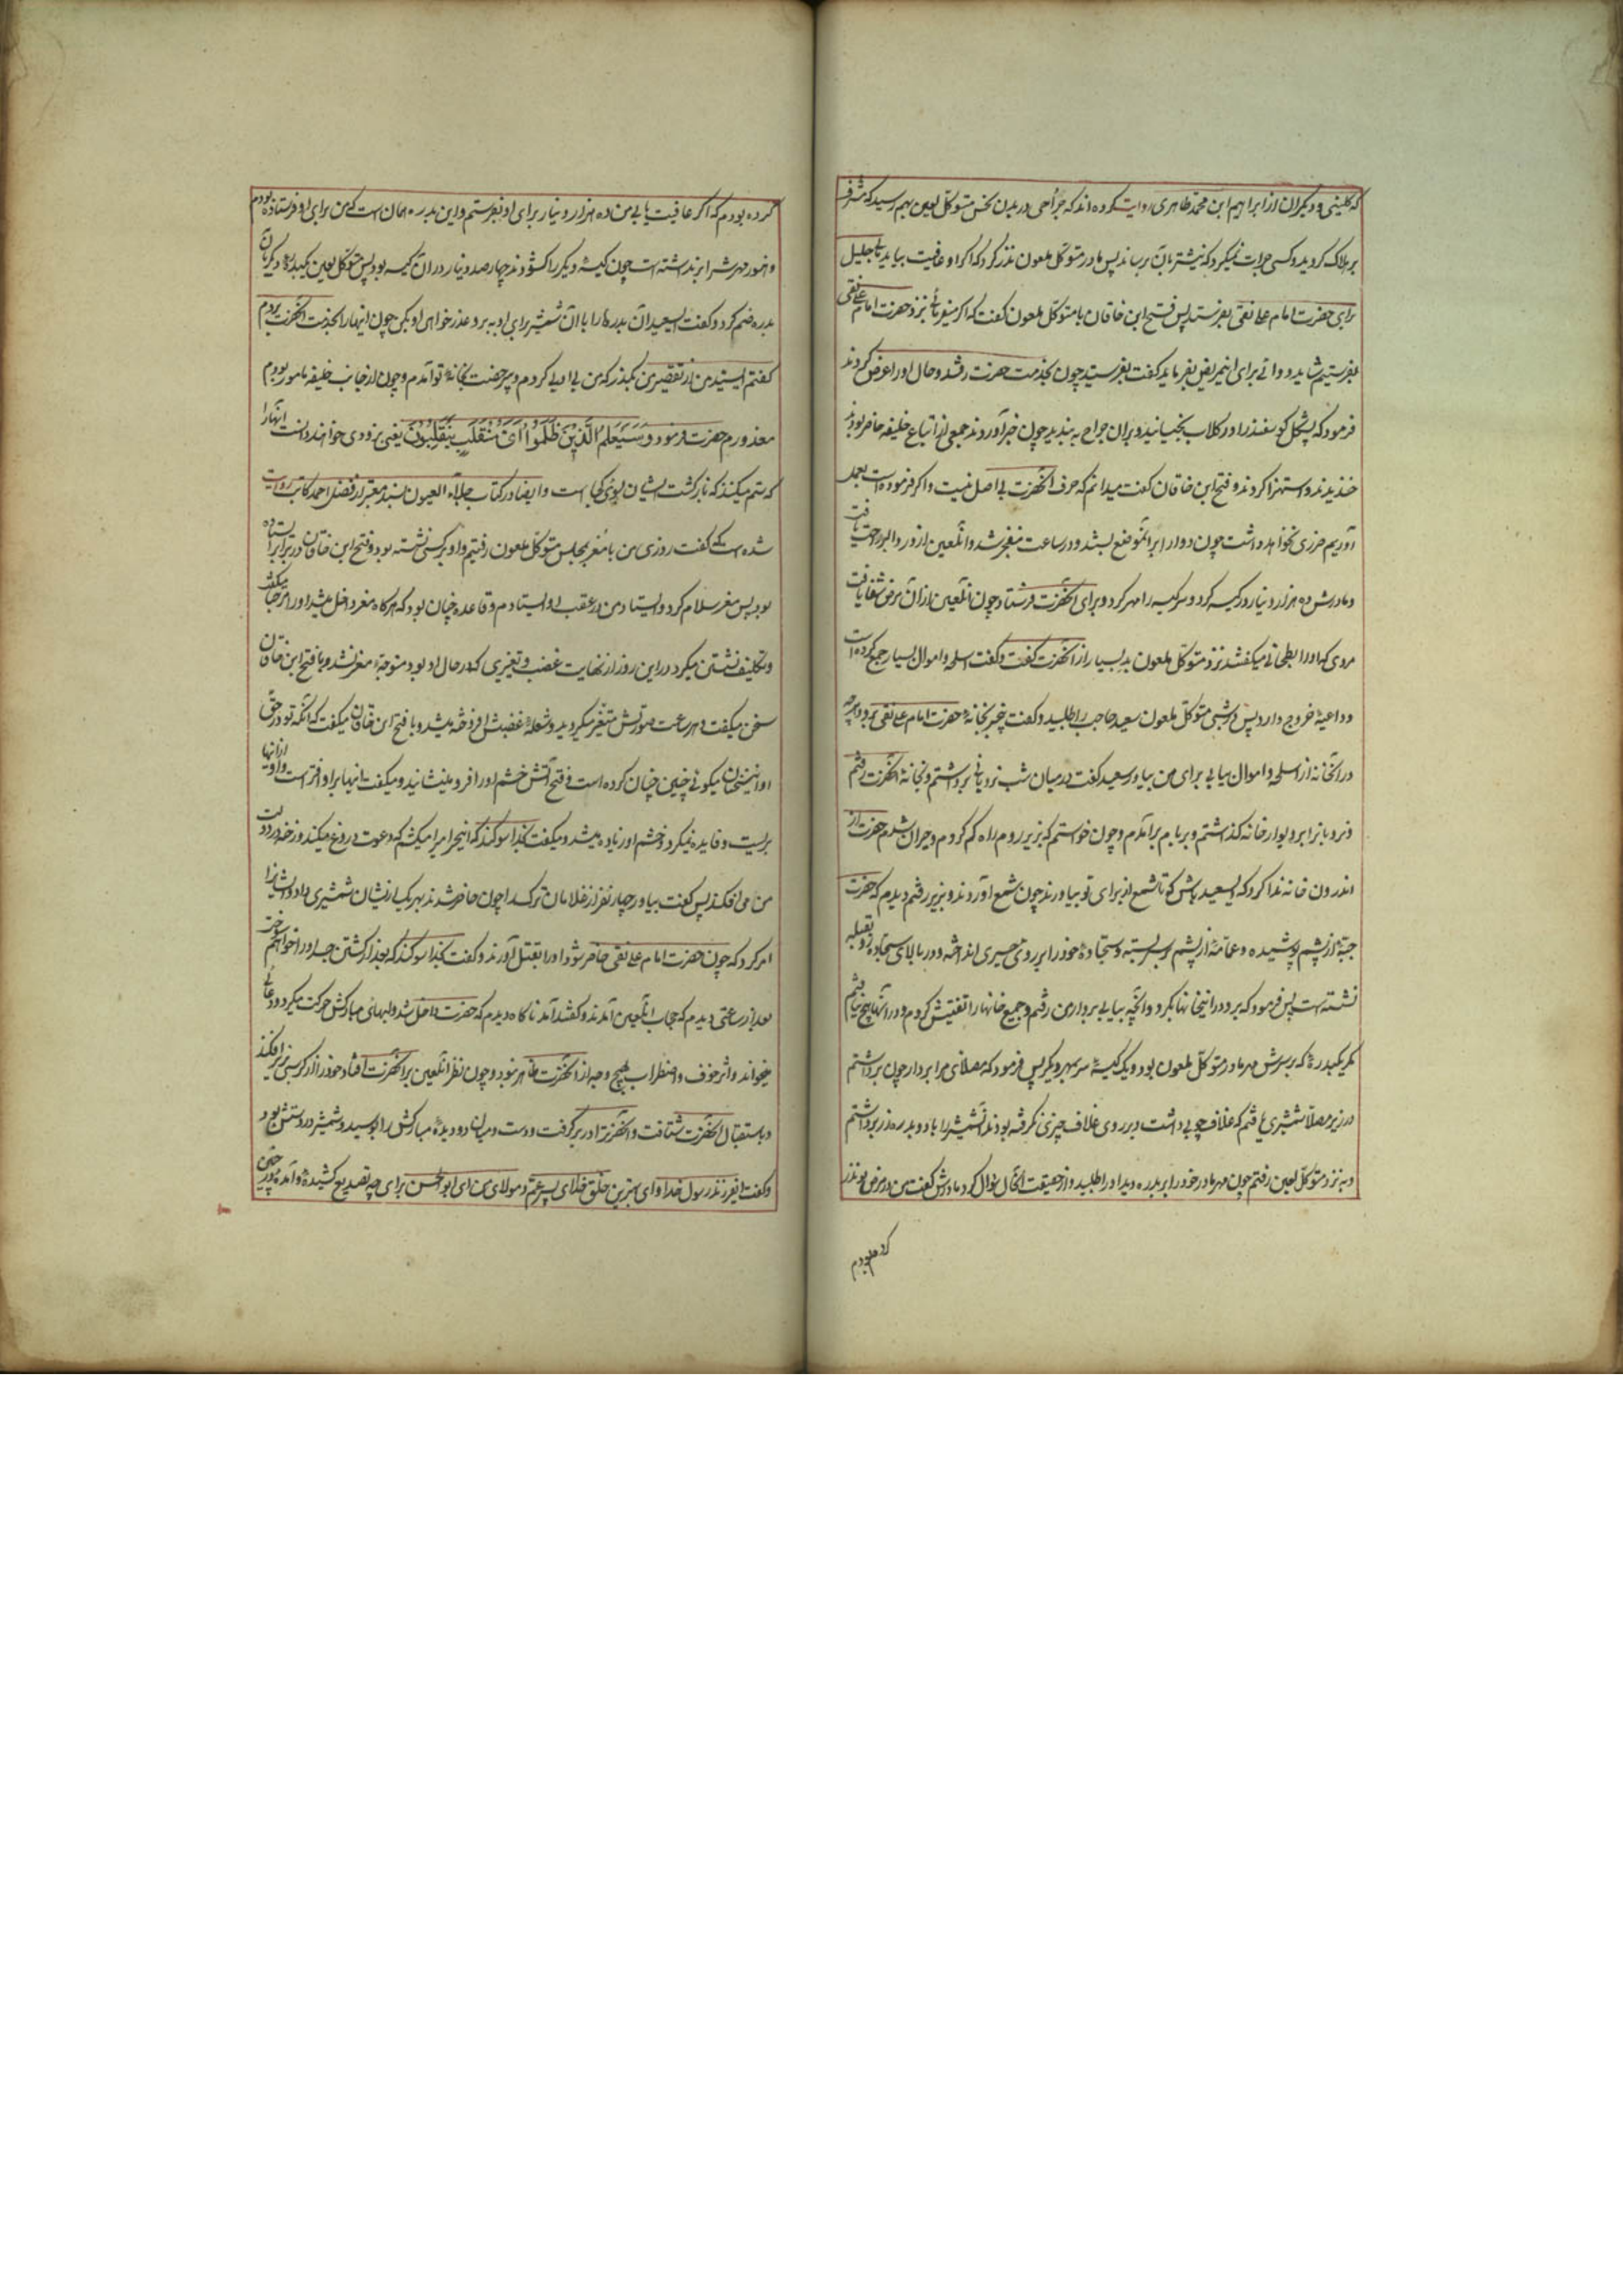 که کلینی و دیگران از ابراهیم ابن محمد طاهری روایت کرده اند که جراحی در بدن نحس متوکل لعین بهم رسید که مشرف
بر هلاک گردید و کسی جرات نمیکرد که نیشتر بان برساند پس مادر متوکل ملعون نذر کرد که اگر او عافیت بیابد جلیل
برای حضرت امام علی نقی بفرستد پس فتح ابن خاقان با متوکل ملعون گفت که اگر میفرمائی نزد حضرت امام علی نقی
بفرستیم شاید دوائی برای این مرض بفرماید گفت بفرستید چون بخدمت حضرت رفتند و حال او را عرض کردند
فرمود که پشکل گوسفند را در گلاب بخیسانید و بران جراح به بندید چون خبر آوردند جمعی از اتباع خلیفه حاضر بودند
خندیدند و استهزا کردند و فتح ابن خاقان گفت میدانم که حرف آنحضرت بی اصل نیست و آنچه فرموده است بعمل
آوریم ضرری نخواهد داشت چون دوا را بر آنموضع بستند در ساعت منفجر شد و آنلعین از درد و الم راحت یافت
و مادرش ده هزار دینار در کیسه کرد و سر کیسه را مهر کرد و برای آنحضرت فرستاد چون آنلعین از آن مرض شفا یافت
مردی که او را بطحائی میگفتند نزد متوکل ملعون بد بسیار از آنحضرت گفت و گفت اسلحه و اموال بسیار جمع کرده است
و داعیهٔ خروج دارد پس در شبی متوکل ملعون سعید حاجب را طلبید و گفت بیخبر بخانهٔ حضرت امام علی نقی برو و هرچه
در آنخانه از اسلحه و اموال بیابی برای من بیاور سعید گفت در میان شب نردبانی برداشتم و بخانهٔ آنحضرت رفتم
و نردبان را بر دیوار خانه گذاشتم و بر بام بر آمدم و چون خواستم که بزیر روم راه گم کردم و حیران شدم حضرت از
اندرون خانه ندا کرد که ای سعید باش تا شمع از برای تو بیاورند چون شمع آوردند و بزیر رفتم دیدم که حضرت
جبهٔ از پشم پوشیده و عمامهٔ از پشم بر سر بسته و سجادهٔ خود را بر روی حصیری انداخته و در بالای سجاده رو بقبله
نشسته است پس فرمود که برو در اینخانها بگرد و آنچه بیابی بردار من رفتم و جمیع خانها را تفتیش کردم و در آنها هیچ نیافتم
مگر یکبدرهٔ که بر سرش مهر مادر متوکل ملعون بود و یک کیسهٔ سر بمهر دیگر پس فرمود که مصلای مرا بردار چون برداشتم
در زیر مصلا شمشیری یافتم که غلاف چوبی داشت و بر روی غلاف چیزی نگرفته بودند آن شمشیر را با دو بدره زر برداشتم
و به نزد متوکل لعین رفتم چون مهر مادر خود را بر بدره دید او را طلبید و از حقیقت آنحال سوال کرد مادرش گفت من در مرض تو نذر
کرده بودم
کرده بودم که اگر عافیت یابی من ده هزار دینار برای او بفرستم و این بدره همان است که من برای او فرستاده بودم
و هنوز مهرش را برنداشته است چون کیسهٔ دیگر را گشودند چهارصد دینار در ان کیسه بود پس متوکل لعین یکبدرهٔ دیگر بآن
بدره ضم کرد و گفت ای سعید آن بدره را با آن شمشیر برای او به بر و عذر خواهی او بکن چون اینها را بخدمت آنحضرت بردم
گفتم ای سید من از تقصیر من بگذر که من بی ادبی کردم و بیرخصت بخانهٔ تو آمدم و چون از جانب خلیفه مامور بودم
معذورم حضرت فرمود و سَیَعلَمُ الَّذینَ ظَلَمُوا اَیَّ مُنقَلَبٍ یَنقَلِبُونَ یعنی بزودی خواهند دانست آنها را
که ستم میکنند که بازگشت ایشان بسوی کجا است و ایضا در کتاب جلاء العیون بسند معتبر از فضل احمد کاتب روایت
شده است که گفت روزی من با معتز بمجلس متوکل ملعون رفتیم و او بر کرسی نشسته بود و فتح ابن خاقان در برابر ایستاده
بود پس معتز سلام کرد و ایستاد من در عقب او ایستادم و قاعده چنان بود که هرگاه معتز داخل میشد او را مرحبا میگفت
و تکلیف نشستن میکرد در این روز از نهایت غضب و تغییری که در حال او بود متوجه معتز نشد و با فتح ابن خاقان
سخن میگفت و هر ساعت صورتش متغیر میگردید و شعلهٔ غضبش افروخته میشد و با فتح ابن خاقان میگفت که آنکه تو در حق
او این سخنان میگوئی چنین چنان کرده است و فتح آتش خشم او را فرو مینشانید و میگفت اینها بر او افتر است و او از اینها
بریست و فایده نمیکرد و خشم او زیاده میشد و میگفت بخدا سوگند که این مرد را میکشم که دعوت دروغ میکند و رخنه در دولت
من می افکند پس گفت بیاور چهار نفر از غلامان ترک را چون حاضر شدند بهر یک از ایشان شمشیری داد و ایشانرا
امر کرد که چون حضرت امام علی نقی حاضر شود او را بقتل آورند و گفت بخدا سوگند که بعد از کشتن جسد او را خواهم سوخت
بعد از ساعتی دیدم که حجاب آنلعین آمدند و گفتند آمد ناگاه دیدم که حضرت داخل شد و لبهای مبارکش حرکت میکرد و دعائی
میخواند و اثر خوف و اضطراب بهیچ وجه از آنحضرت ظاهر نبود و چون نظر آنلعین بر آنحضرت افتاد خود را از کرسی بزیر افکند
و باستقبال آنحضرت شتافت و آنحضرت را در بر گرفت و دست و میان دو دیدهٔ مبارکش را بوسید و شمشیر در دستش بود
و گفت ای فرزند رسول خدا و ای بهترین خلق خدا ای پسر عم و مولای من ای ابو الحسن برای چه تصدیع کشیدهٔ و آمدهٔ در چنین